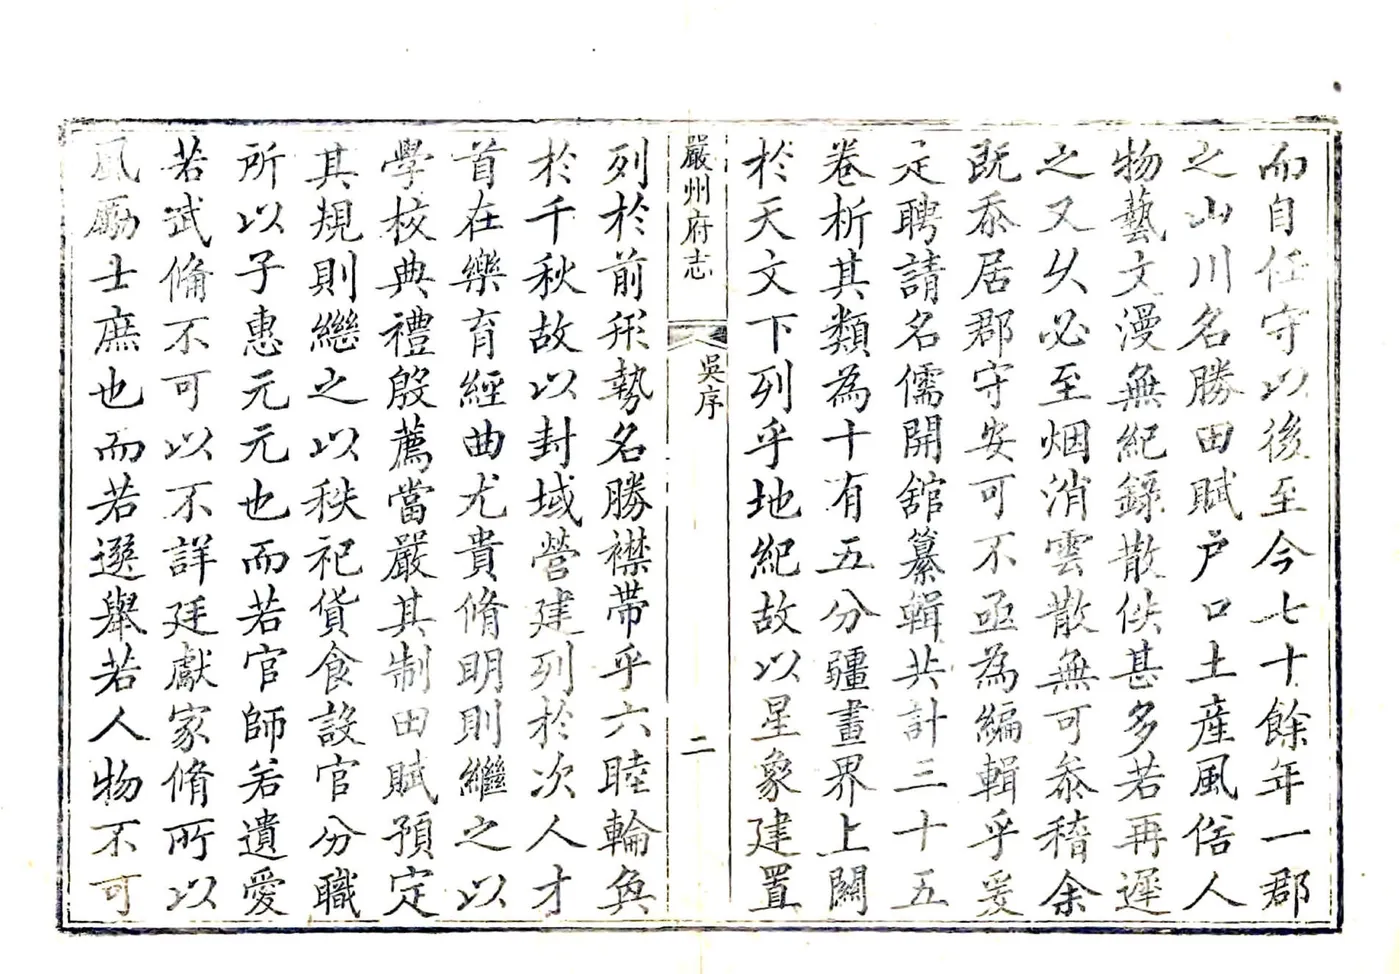 而自任守以後至今七十餘年一郡
之山川名勝田賦户口土産風俗人
物藝文漫無紀錄散佚甚多若再遲
之又久必至烟消雲散無可叅稽余
既忝居郡守安可不亟為編輯乎爰
定聘請名儒開舘纂輯共計三十五
卷析其類為十有五分疆畫界上闗
於天文下列乎地紀故以星象建置
嚴州府志
吳序
二
列於前形勢名勝襟帶乎六睦輪奐
於千秋故以封域營建列於次人才
首在樂育經曲尤貴脩明則繼之以
學校典禮殷薦當嚴其制田賦預定
其規則繼之以秩祀貨食設官分職
所以子惠元元也而若官師若遺愛
若武備不可以不詳廷獻家脩所以
風勵士庶也而若選舉若人物不可